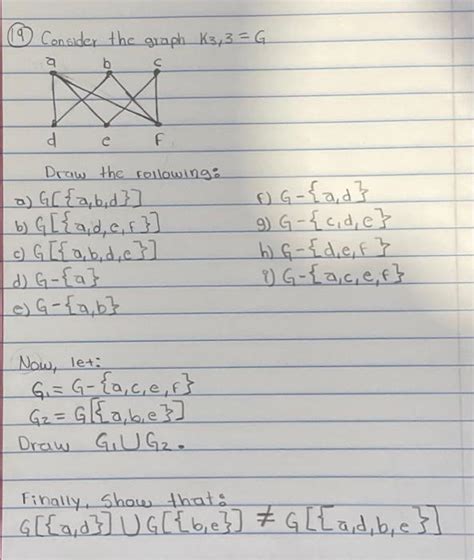 19 Consider the graph K3,3 = G
a b c
d e f
Draw the following:
a) G[{a,b,d}]
b) G[{a,d,e,f}]
c) G[{a,b,d,e}]
d) G-{a}
e) G-{a,b}
f) G-{a,d}
g) G-{c,d,e}
h) G-{d,e,f}
i) G-{a,c,e,f}
Now, let:
G₁ = G-{a,c,e,f}
G₂ = G[{a,b,e}]
Draw G₁ ∪ G₂.
Finally, show that:
G[{a,d}] ∪ G[{b,e}] ≠ G[{a,d,b,e}]